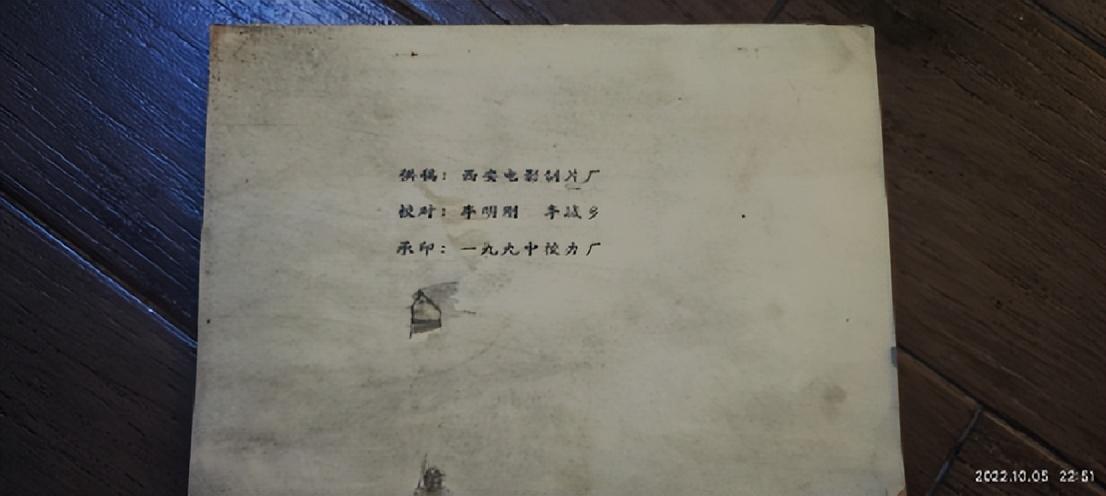 供稿：西安电影制片厂
校对：李明刚 李城乡
承印：一九九中校办厂
2022.10.05 22:51